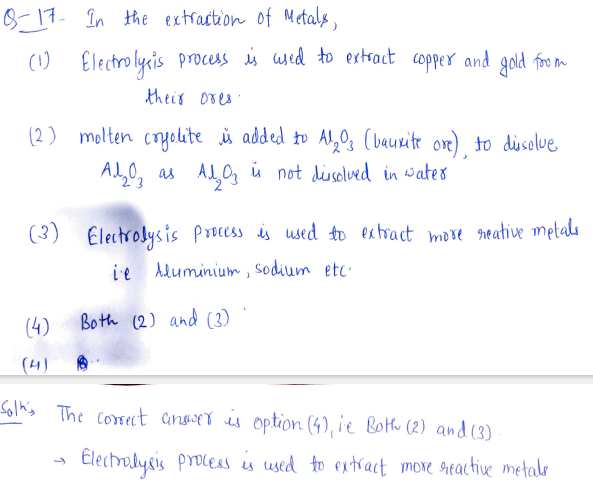 Q-17. In the extraction of Metals,
(1) Electrolysis process is used to extract copper and gold from
their ores.
(2) molten cryolite is added to Al₂O₃ (bauxite ore), to dissolve
Al₂O₃ as Al₂O₃ is not dissolved in water
(3) Electrolysis process is used to extract more reative metals
i.e Aluminium, Sodium etc.
(4) Both (2) and (3)
(4)
Solⁿ: The correct answer is option (4), ie Both (2) and (3).
→ Electrolysis process is used to extract more reactive metals